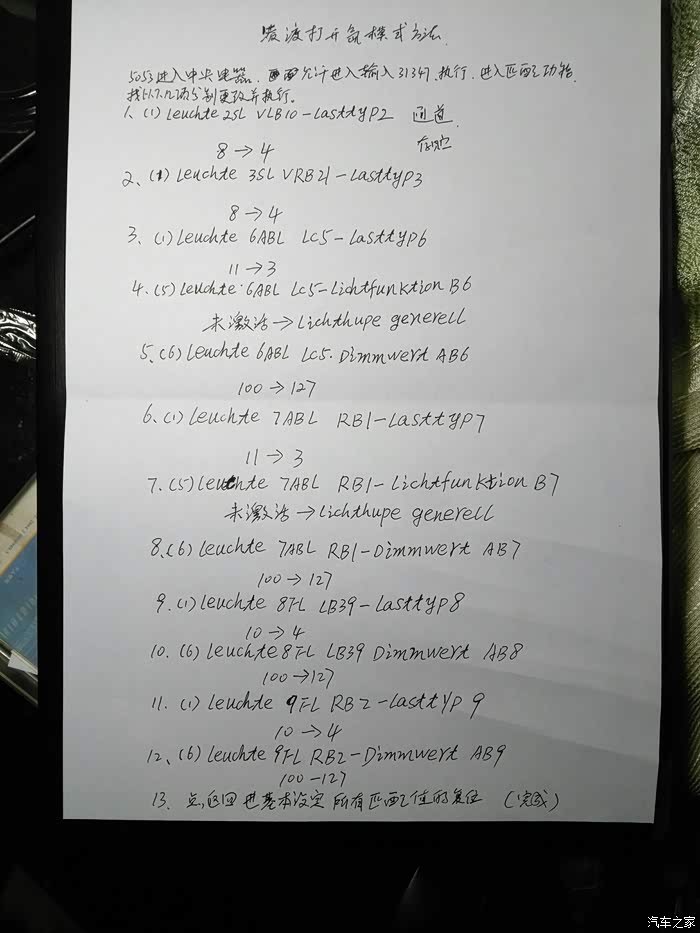 凌渡打开氙模式方法
5053进入中央电器, 允许进入输入31347, 执行, 进入匹配功能,
找以下几项分别更改并执行。
1、(1) Leuchte 2SL VLB10-Lasttyp2 通道
8→4
2、(1) Leuchte 3SL VRB21-Lasttyp3
8→4
3、(1) Leuchte 6ABL LC5-Lasttyp6
11→3
4.(5) Leuchte 6ABL LC5-Lichtfunktion B6
未激活→Lichthupe generell
5、(6) Leuchte 6ABL LC5. Dimmwert AB6
100→127
6、(1) Leuchte 7ABL RB1-Lasttyp7
11→3
7.(5) Leuchte 7ABL RB1-Lichtfunktion B7
未激活→Lichthupe generell
8.(6) Leuchte 7ABL RB1-Dimmwert AB7
100→127
9.(1) Leuchte 8FL LB39-Lasttyp8
10→4
10.(6) Leuchte 8FL LB39 Dimmwert AB8
100→127
11.(1) Leuchte 9FL RB2-Lasttyp9
10→4
12、(6) Leuchte 9FL RB2-Dimmwert AB9
100-127
13. 点返回进基本设定 所有匹配值的复位 (完成)
汽车之家